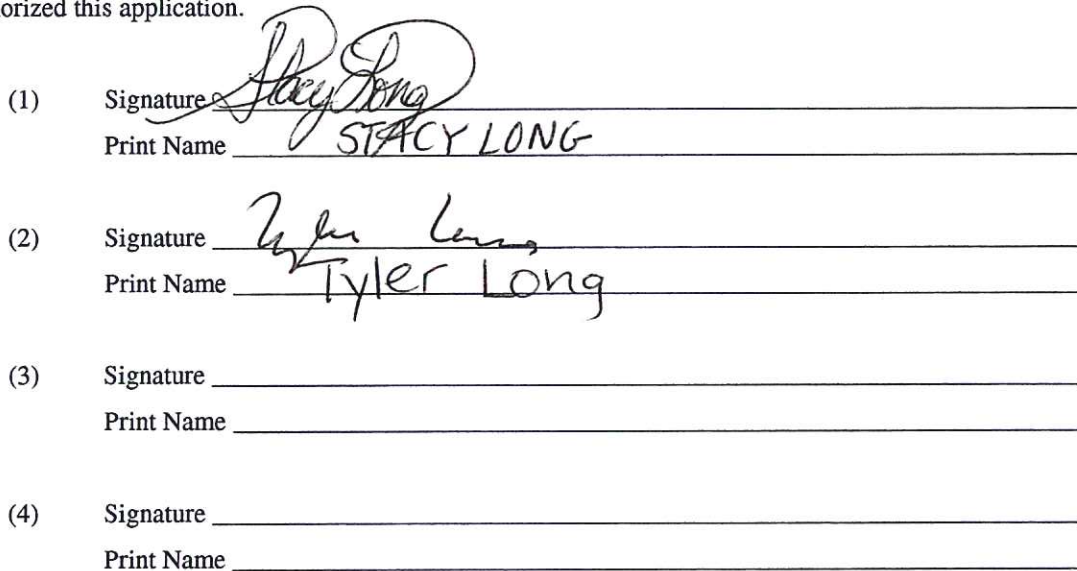 orized this application.
(1) Signature Stacy Long
Print Name STACY LONG
(2) Signature Tyler Long
Print Name Tyler Long
(3) Signature
Print Name
(4) Signature
Print Name